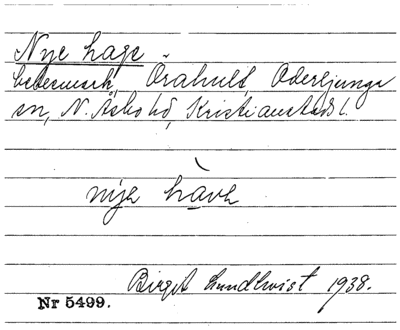 Nye hage
betesmark, Örahult, Oderljunga
sn, N. Åsbo hd, Kristianstads l.
nýe hàva
Birgit Lundkvist 1938.
Nr 5499.